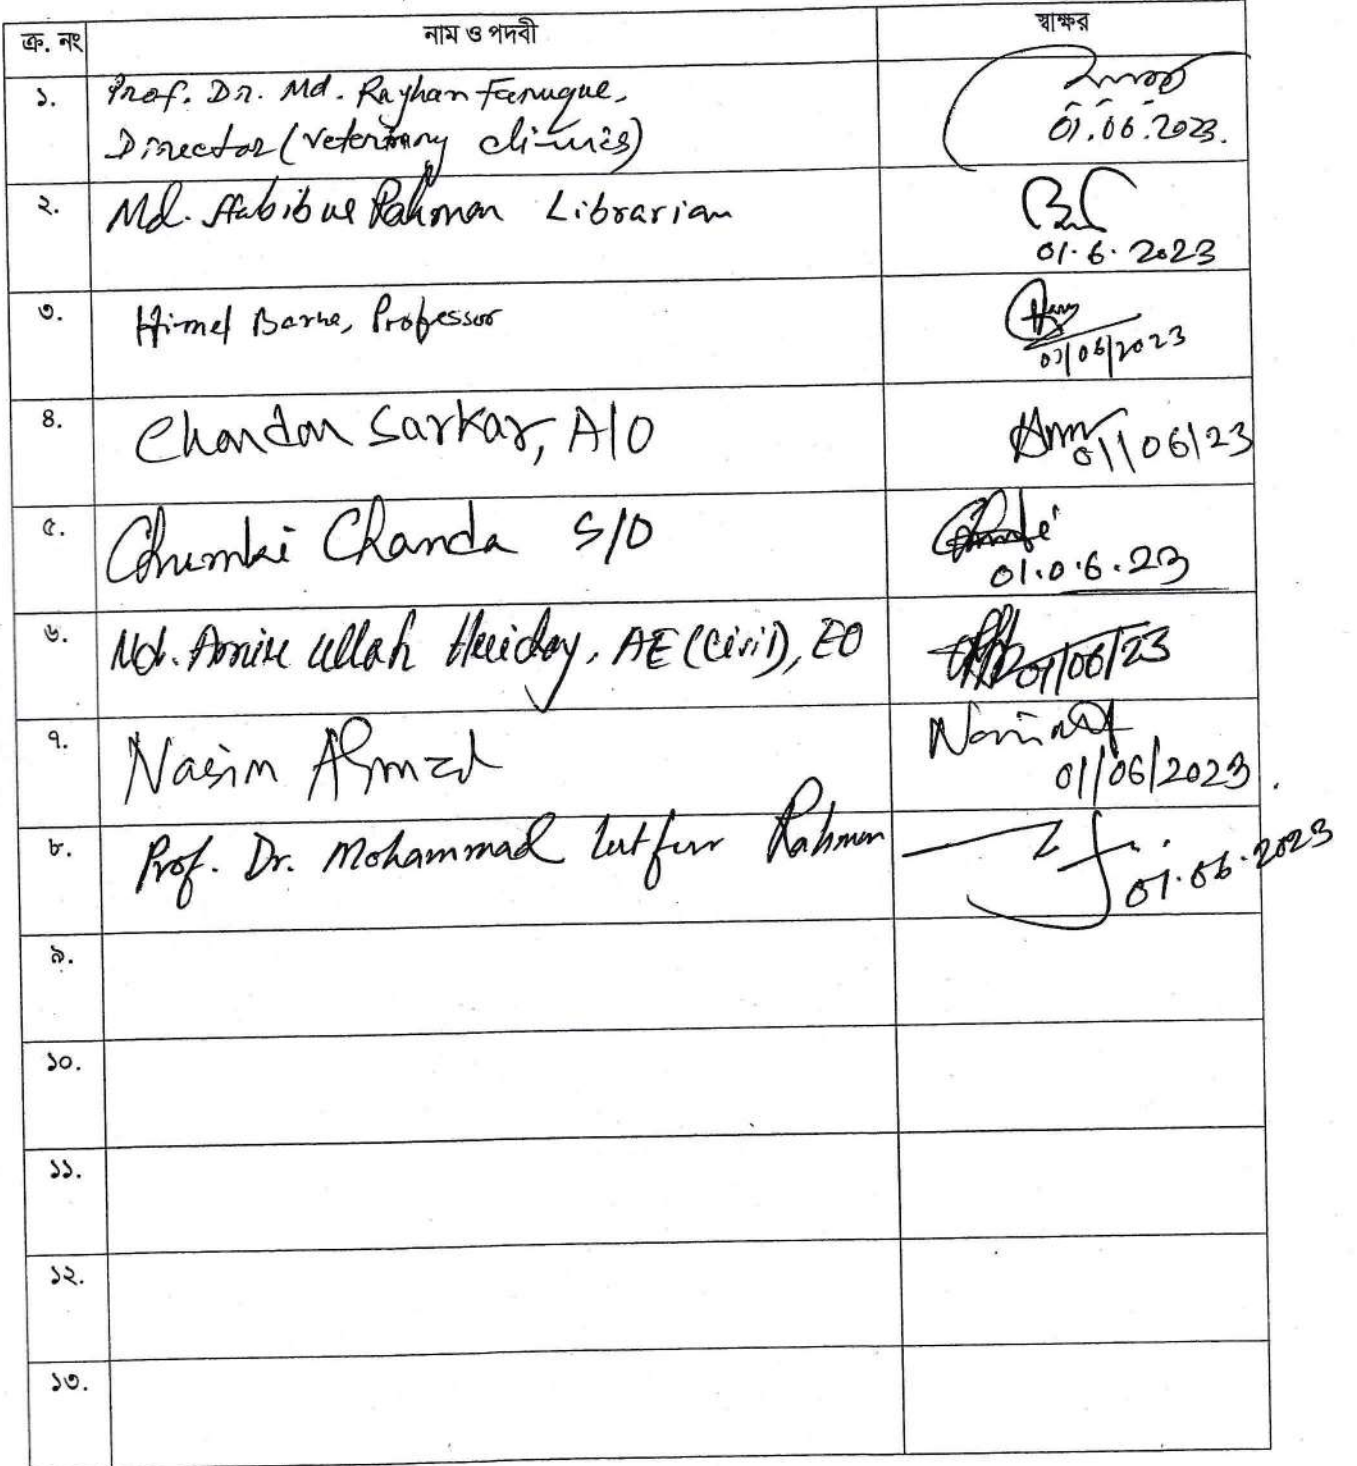 ক্র. নং নাম ও পদবী স্বাক্ষর
১. Prof. Dr. Md. Rayhan Faruque,
Director (Veterinary clinics) 01.06.2023.
২. Md. Habibur Rahman Librarian
01.6.2023
৩. Himel Barua, Professor
01/06/2023
৪. Chandan Sarkar, A/O 01/06/23
৫. Chumki Chanda S/O
01.06.23
৬. Md. ullah AE (Civil), EO 01/06/23
৭. Nasim Ahmed
01/06/2023
৮. Prof. Dr. Mohammad Lutfur Rahman 01.06.2023
৯.
১০.
১১.
১২.
১৩.